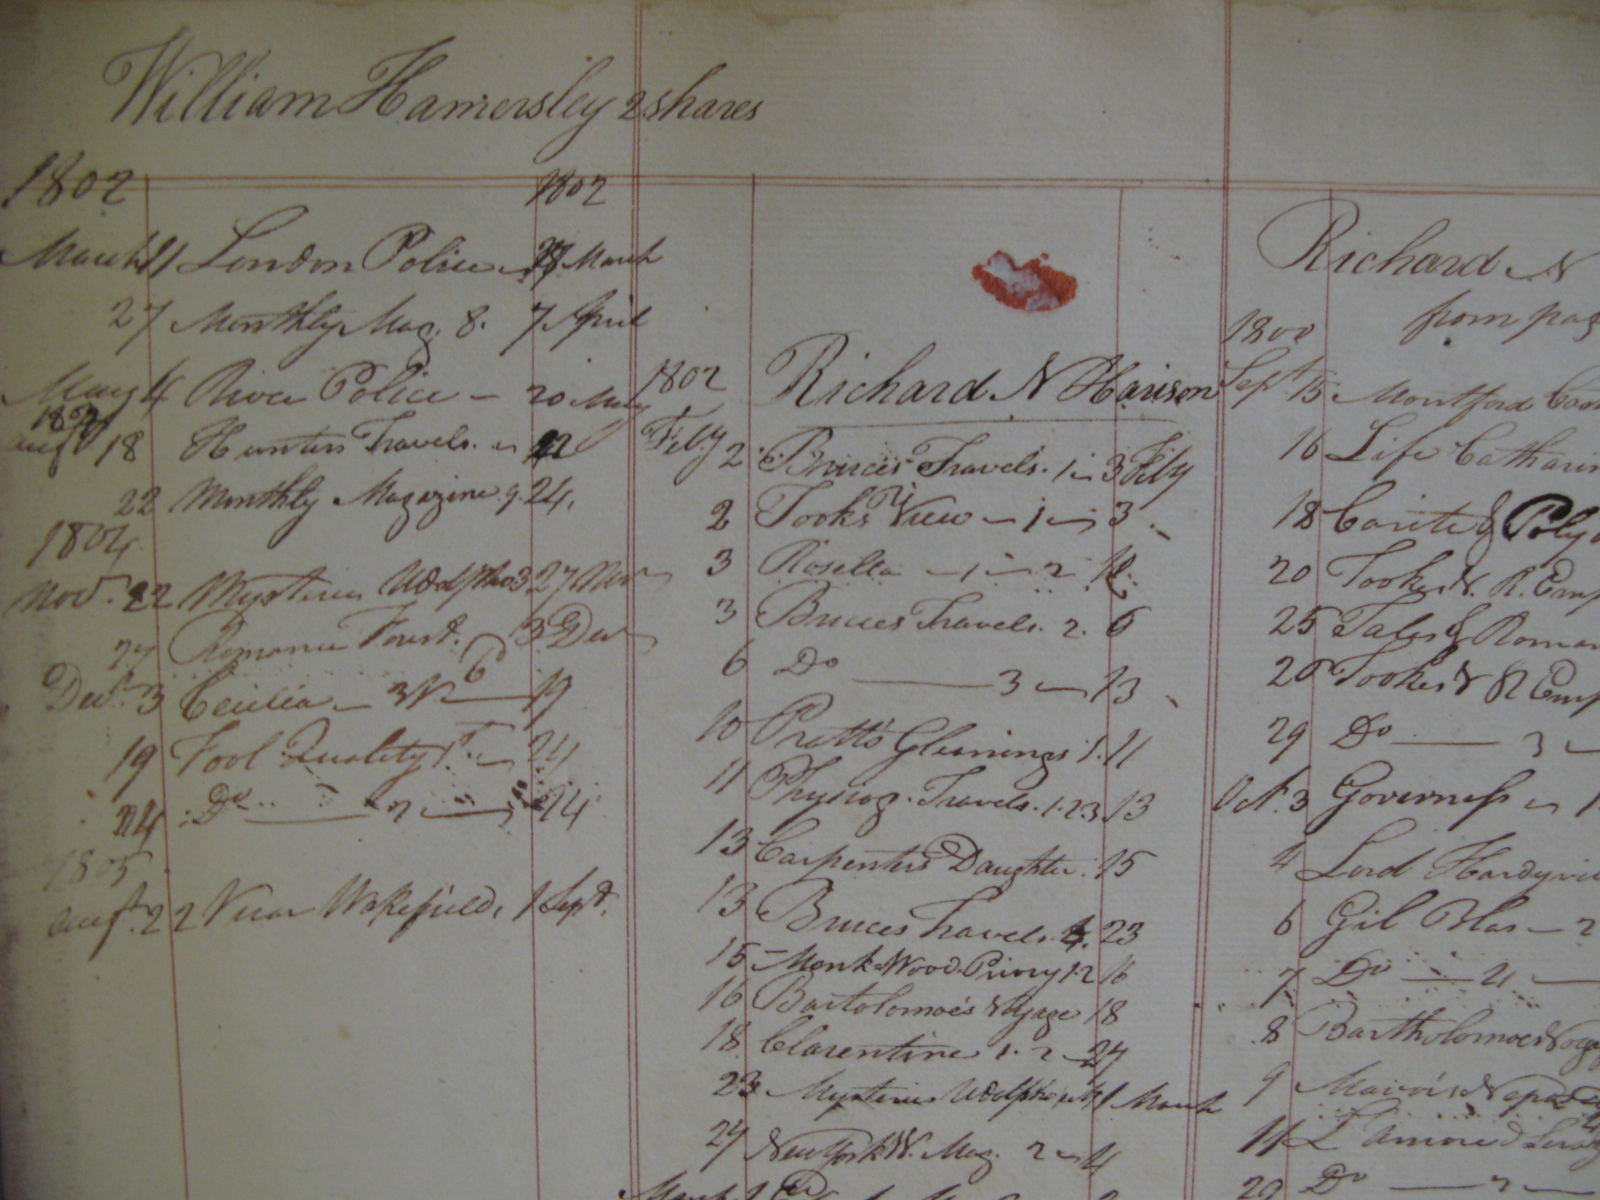 William Hamersley 2 shares
1802 1802
March 11 London Police 28 March
27 Monthly Mag. 8. 7 April
May 4 River Police 20 May
1803
Augt 18 Hunters Travels. 22
22 Monthly Magazine 9. 24.
1804
Novr. 22 Mysteries Udolpho 3 27 Nov
27 Romance Forest. 3 Decr
Decr. 3 Cecilia 19
19 Fool Quality 1 24
24 Do 2 24
1805
Augt. 22 Vicar Wakefield, 1 Sept.
1802 Richard N Harison
Feby 2 Bruces Travels. 1 3 Feby
2 Tooks View 1 3
3 Rosella 1 2
3 Bruces Travels. 2. 6
6 Do 3 13
10 Pratts Gleanings 1. 11
11 Physiog. Travels. 1.2.3 13
13 Carpenters Daughter. 15
13 Bruces Travels. 4. 23
15 Monk Wood Priory 1 2 16
16 Bartolomoes Voyage 18
18 Clarentine 1. 2 24
23 Mysteries Udolpho 1 March
24 New York W. Mag. 2 4
March 1
Richard N
from pag
1800
Sept 15 Montford Cas
16 Life Catharin
18 Carite & Poly
20 Tookes V. R. Emp
25 Tales of Roman
26 Tookes V R Emp
29 Do 3
Oct. 3 Governess
4 Lord Hardyvi
6 Gil Blas 2
7 Do 4
8 Bartholomoes Voy
9
11
20 Do 2